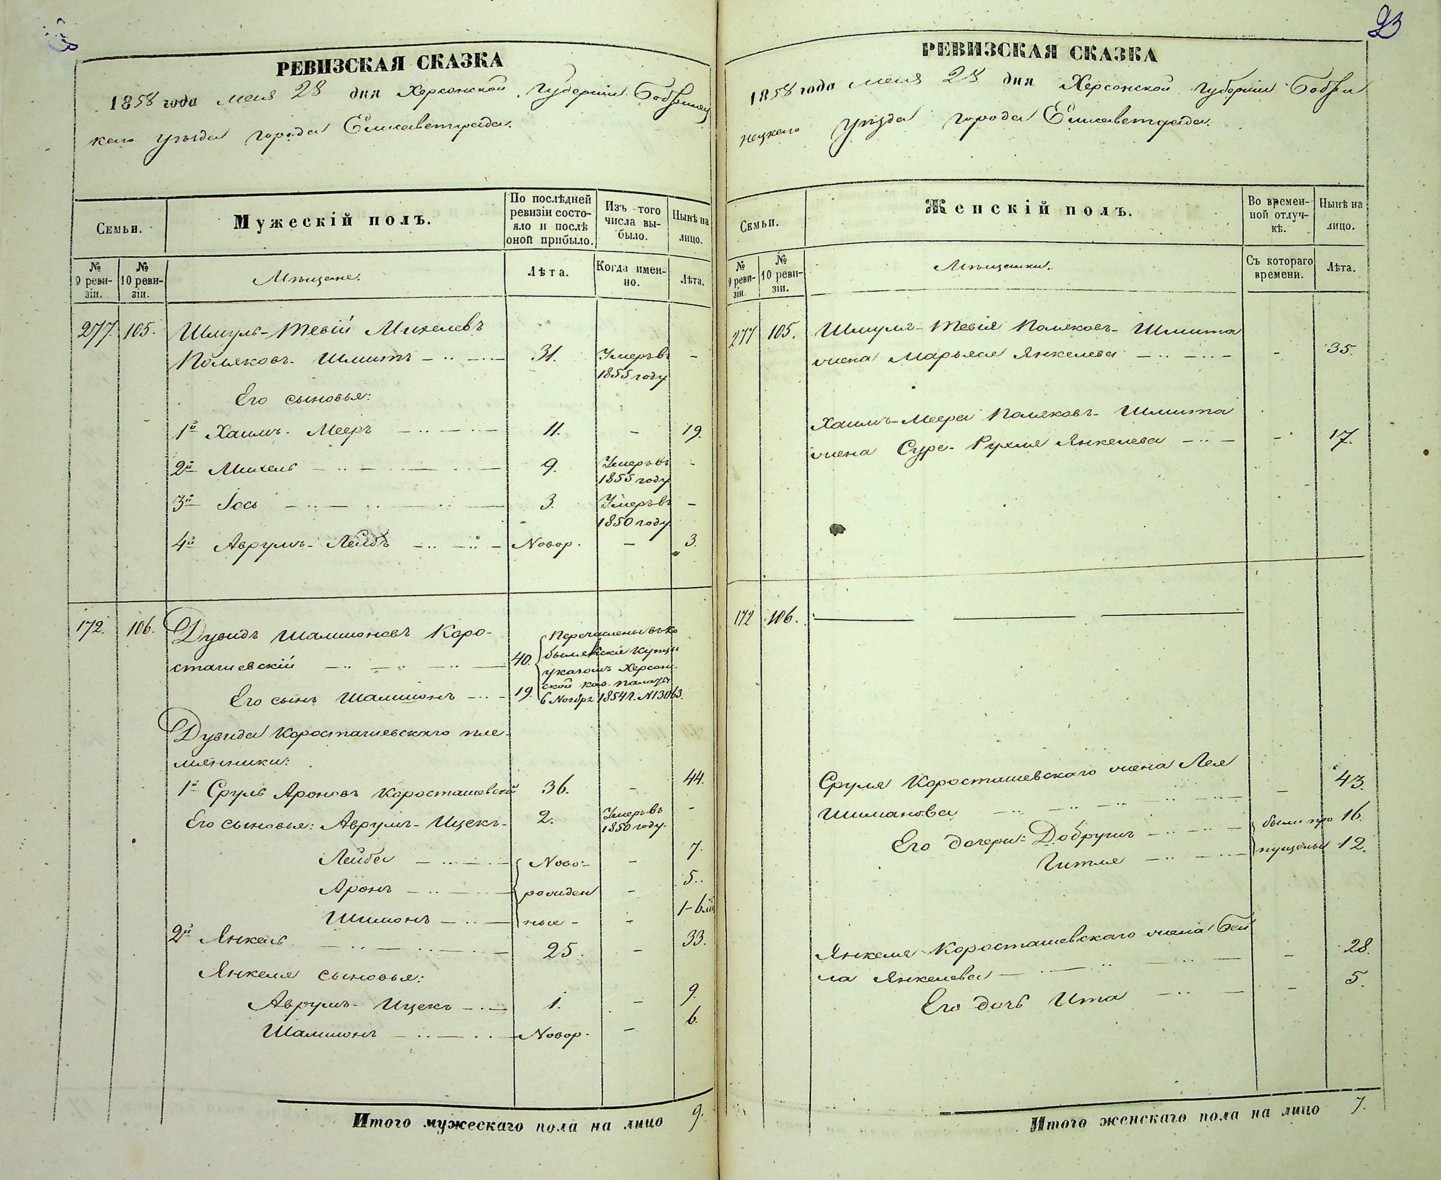 РЕВИЗСКАЯ СКАЗКА
1858 года мая 28 дня Херсонской Губерніи Бобринец
каго уѣзда города Елисаветграда.
Семьи.
Мужескій полъ.
По послѣдней ревизіи состояло и послѣ оной прибыло.
Изъ того числа выбыло.
Нынѣ на лицо.
№ 9 ревизіи.
№ 10 ревизіи.
Мѣщане.
Лѣта.
Когда именно.
Лѣта.
277. 105. Шмуль-Тевій Михелевъ
Поляковъ-Шмитъ 31. Умеръ въ 1855 году –
Его сыновья:
1й Хаимъ-Мееръ 11. – 19.
2й Михель 9. Умеръ въ 1855 году –
3й Іось 3. Умеръ въ 1850 году –
4й Аврумъ-Лейбъ Новор. – 3.
172. 106. Дувидъ Шамшоновъ Коро-
сташевскій 40.
Его сынъ Шамшонъ 19
Перечислены въ Бо
указомъ Херсон-
ской каз. палаты
6 Ноябр. 1854 г. N 13063.
Дувида Коросташевскаго пле-
мянники:
1й Сруль Ароновъ Коросташевскій 36. – 44.
Его сыновья: Аврумъ-Ицекъ 2. Умеръ въ 1850 году. –
Лейба Ново- – 7.
Аронъ рожден – 5.
Шимонъ ные – 1-6 мѣ
2й Янкель 25. – 33.
Янкеля сыновья:
Аврумъ-Ицекъ 1. – 9.
Шамшонъ Новор. – 6.
Итого мужескаго пола на лицо 9.
23
РЕВИЗСКАЯ СКАЗКА
1858 года мая 28 дня Херсонской Губерніи Бобри
нецкаго уѣзда города Елисаветграда.
Семьи.
Женскій полъ.
Во временной отлучкѣ.
Нынѣ на лицо.
№ 9 ревизіи.
№ 10 ревизіи.
Мѣщанки.
Съ котораго времени.
Лѣта.
277 105. Шмуля-Тевія Поляковъ-Шмита
жена Марьяся Янкелева – 35.
Хаимъ-Меера Поляковъ-Шмита
жена Сура-Рухля Янкелева – 17.
172 106.
Сруля Коросташевскаго жена Лея
Шимановa – 43.
Его дочери: Добрушъ были про 16.
Гитля пущены 12.
Янкеля Коросташевскаго жена Бей
ла Янкелева – 28.
Его дочь Ита – 5.
Итого женскаго пола на лицо 7.